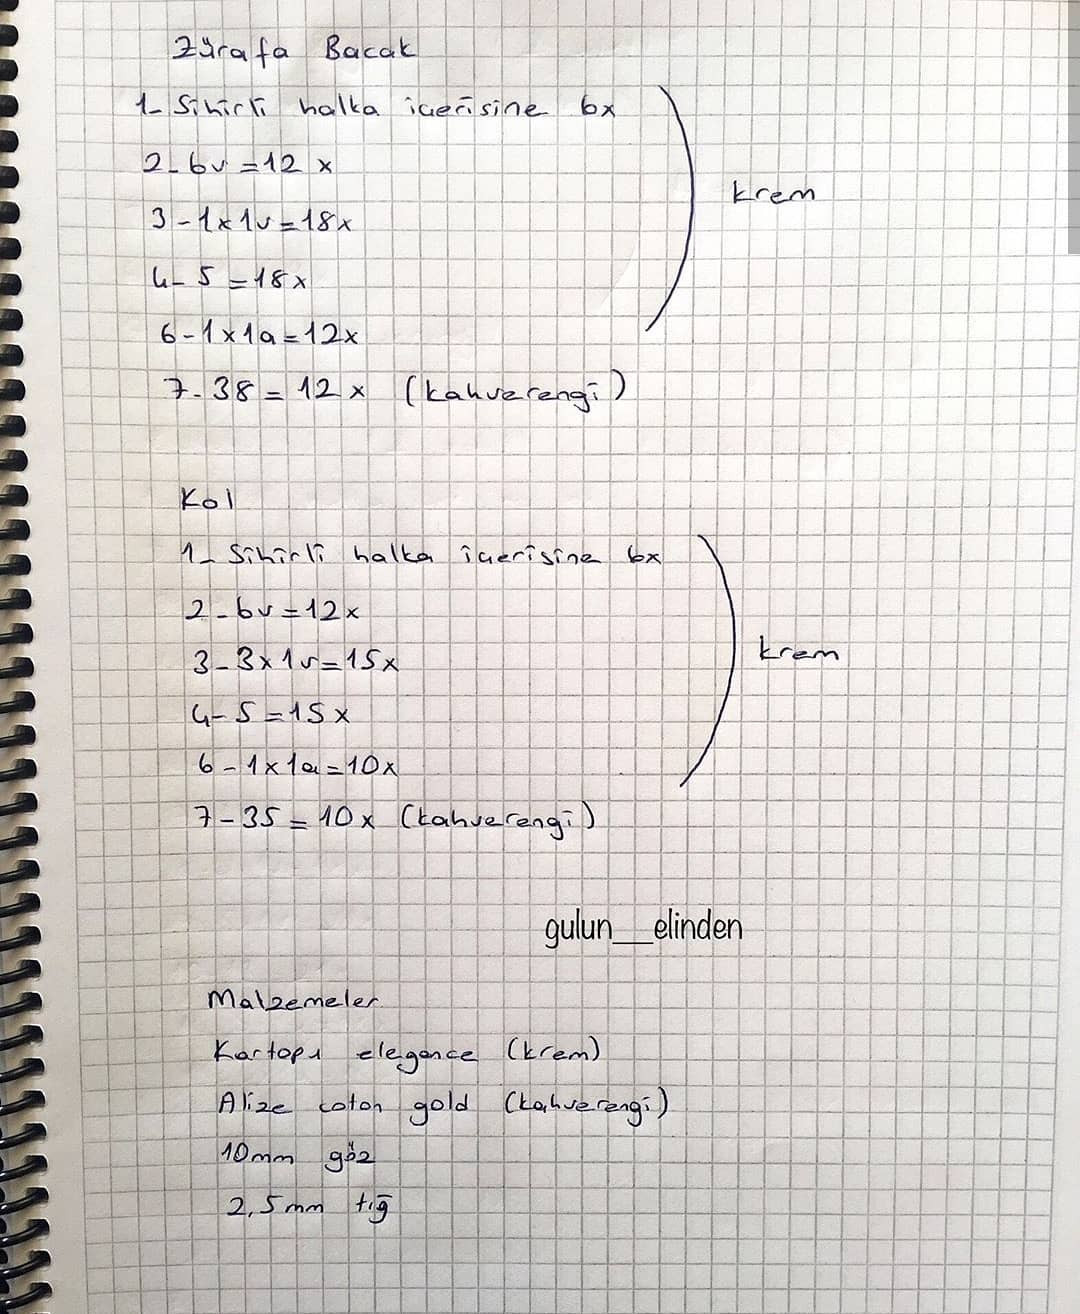 Zürafa Bacak
1- Sihirli halka içerisine 6x
2- 6v = 12 x
3 - 1x1v = 18x
krem
4 - 5 = 18x
6 - 1x1a = 12x
7 - 38 = 12 x (kahverengi)
Kol
1- Sihirli halka içerisine 6x
2 - 6v = 12x
3 - 3x1v = 15x
krem
4 - 5 = 15 x
6 - 1x1a = 10x
7 - 35 = 10x (kahverengi)
gulun__elinden
Malzemeler
Kartopı elegance (krem)
Alize coton gold (kahverengi)
10mm göz
2,5mm tığ